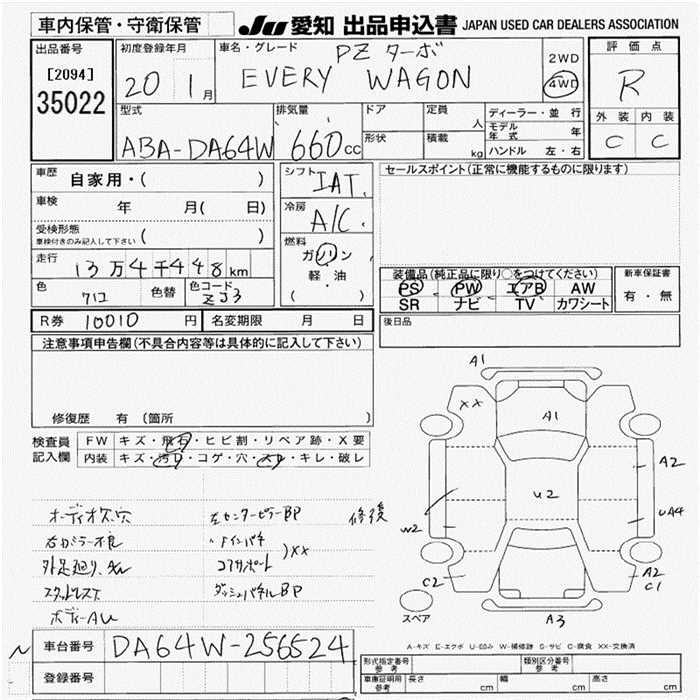 車内保管・守衛保管
JU 愛知 出品申込書 JAPAN USED CAR DEALERS ASSOCIATION
出品番号
[2094]
35022
初度登録年月
20 1月
車名・グレード
PZ ターボ
EVERY WAGON
2WD
4WD
評価点
R
外装 内装
C C
型式
ABA-DA64W
排気量
660cc
ドア
形状
定員
人
積載
kg
ディーラー・並行
モデル年式 年
ハンドル 左・右
車歴 自家用・( )
車検 年 月( 日)
受検形態
車検付きのみ記入して下さい ( )
走行 13万4千448km
色 色替 色コード
クロ ZJ3
シフト
IAT.
冷房
A/C.
燃料
ガソリン
軽・油
( )
セールスポイント(正常に機能するものに限ります)
装備品(純正品に限り○をつけてください)
PS PW エアB AW
SR ナビ TV カワシート
新車保証書
有・無
R券 10010 円 名変期限 月 日
後日品
注意事項申告欄(不具合内容等は具体的に記入して下さい)
修復歴 有(箇所 )
検査員
記入欄
FW キズ・飛石・ヒビ割・リペア跡・X要
内装 キズ・汚れ・コゲ・穴・スレ・キレ・破レ
オーディオ欠、穴
右カミラー不良
スタッドレス
ボディーAU
左センターピラーBP 修後
コアサポート
)XX
ダッシュパネルBP
A1
XX
A1
A2
U2
UA4
W2
C2
A2
C1
A3
スペア
A-キズ E-エクボ U-凹み W-補修跡 S-サビ C-腐食 XX-交換済
車台番号 DA64W-256524
登録番号
形式指定番号
参考
類別区分番号
参考
車庫証明用
参考
長さ cm 幅 cm 高さ cm